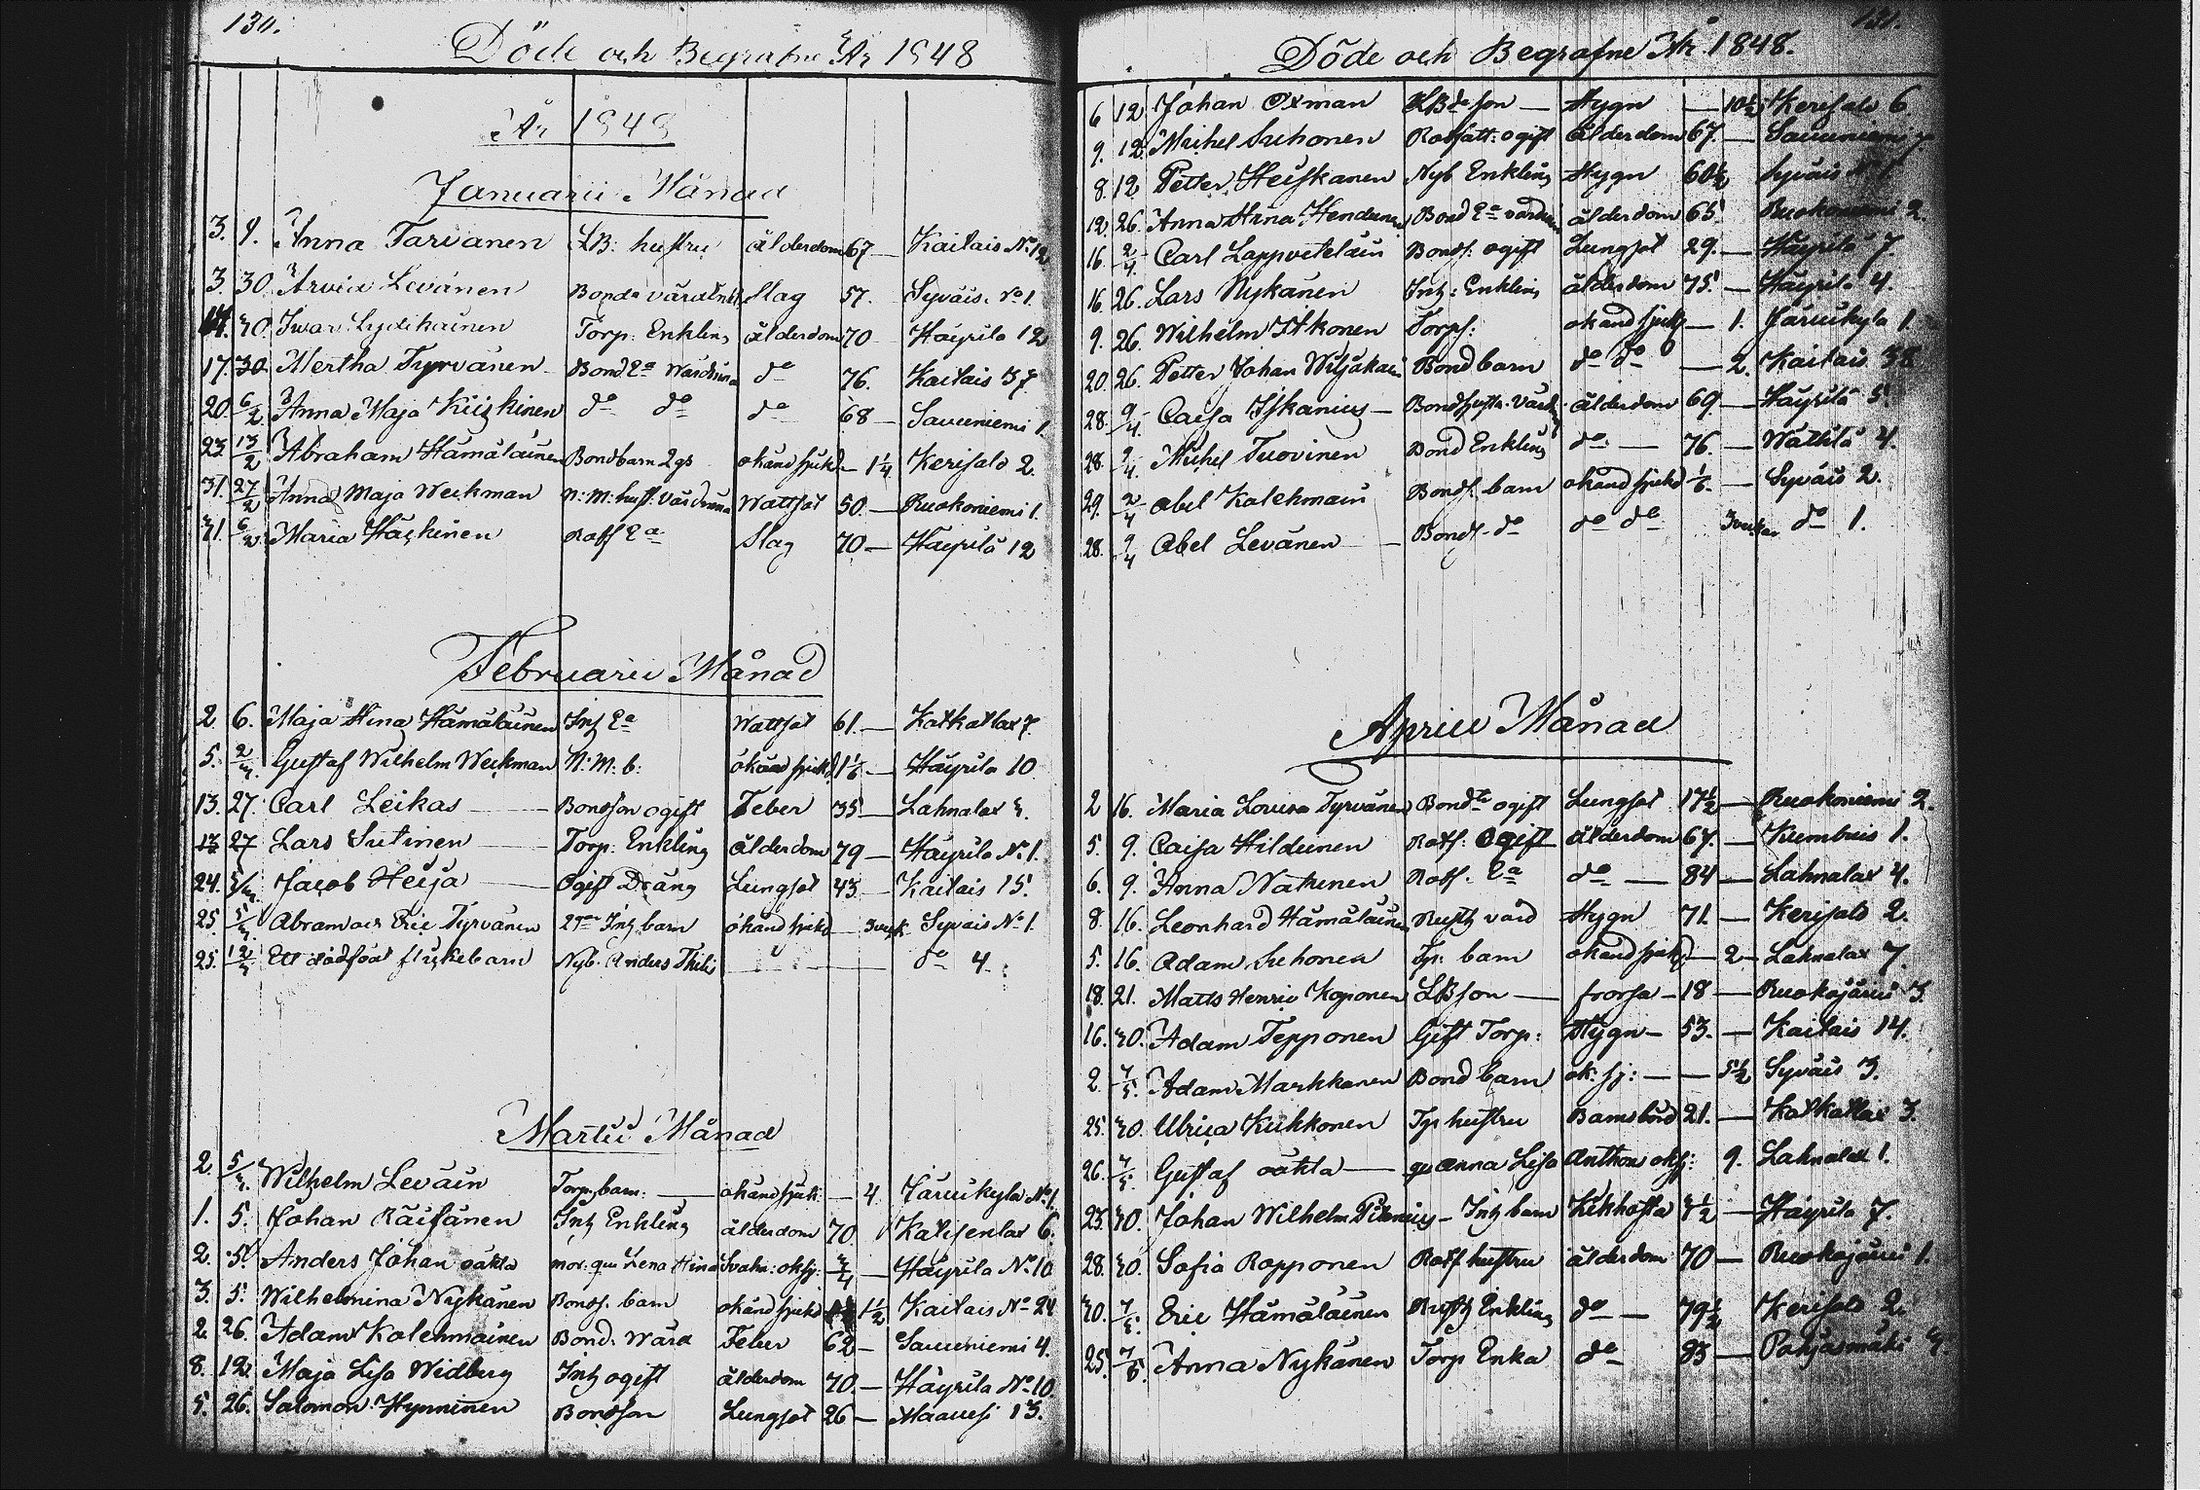 130.
Döde och Begrafne År 1848
År 1848
Januarii Månad
3. 9. Anna Tarvanen LB: hustru ålderdom 67 — Kaitais No 12
3. 30. Arvid Levänen Bonde värdinh Slag 57. Syväis. No 1.
14. 30. Ivar Lydikäinen Torp: Enkling ålderdom 70 Häyrilä 12
17. 30 Mertha Tyrvänen Bond Ea Wärdinna do 76. Kaitais 37
20. 6/2 Anna Maja Kiiskinen do do do 68 — Sauviniemi 1
23 13/2 Abraham Hämäläinen Bondbarn 2gs okänd sjukd — 1 1/4 Kerisalo 2.
31. 27/2 Anna Maja Weckman N: M: hust: Värdinna Wattsot 50. — Ruokoniemi 1.
31. 6/2 Maria Häskinen Rotf Ea Slag 70 — Häyrilä 12
Februarii Månad
2 6. Maja Stina Hämäläinen Inh Ea Wattsot 61. — Katkatlax 7
5. 2/3. Gustaf Wilhelm Weckman N: M: b: okänd sjukd 1 1/6 — Häyrilä 10
13. 27. Carl Leikas — Bondson ogift Feber 35 — Lahnalax 3.
13 27 Lars Sutinen — Torp: Enkling ålderdom 79 — Häyrilä No 1.
24. 5/3. Jacob Heija — Ogift Dräng Lungsot 43 — Kaitais 15.
25. 5/3 Abram och Eric Tyrvänen 2ne Inh barn okänd sjukd — 3 veck Syväis No 1.
25. 12/3 Ett dödfödt flickebarn Nyb. Anders Thili — do 4.
Martii Månad
2. 5/3. Wilhelm Leväin Torp. barn: — okänd sjuk: — 4. Järvikylä No 1.
1. 5. Johan Räisänen Inh Enkling ålderdom 70. Katisenlax 6.
2. 5. Anders Johan oäkta mor: qu: Lena Stina Svahn: oksj: 3/4 — Häyrilä No 10
3. 5. Wilhelmina Nykänen Bonds. barn okänd sjukd 1 1/2 Kaitais No 24
2. 26. Adam Kolehmainen Bond. Wärd Feber 62 — Sauviniemi 4.
8. 12. Maja Lisa Widberg Inh ogift ålderdom 70. — Häyrilä No 10.
5. 26. Salomon Hynninen Bondson Lungsot 26 — Maavesi 13.
131.
Döde och Begrafne År 1848.
6 12 Johan Oxman LBde son — Hygn — 10 1/2 Kerisalo 6
9. 12. Michel Suhonen Rotfatt: ogift ålderdom 67. — Sauviniemi 7.
8 12 Petter Heiskanen Nyb Enkling Hygn 60 1/2 Syväis No 1
12. 26. Anna Stina Hendunen Bond Ea värdinn ålderdom 65 Ruokoniemi 2.
16. 2/4 Carl Lappvetelain Bonds. ogift Lungsot 29. — Häyrilä 7.
16 26. Lars Nykänen Inh: Enkling ålderdom 75 — Häyrilä 4.
9. 26. Wilhelm Itkonen Torps: okänd sjukd — 1. Järvikylä 1.
20. 26. Petter Johan Wiljakain Bond barn do do — 2. Kaitais 38
28. 9/4 Caisa Iskanius — Bondhustr. Värd: ålderdom 69. — Häyrilä 5.
28. 9/4 Michel Tuovinen Bond Enkling do — 76. — Wättilä 4.
29. 2/4 Abel Kolehmain Bonds. barn okänd sjukd 1/6. — Syväis 2.
28. 9/4 Abel Levänen — Bonds. do do do 3 veckor do 1.
Aprill Månad
2 16. Maria Lovisa Tyrvänen Bond dtr ogift Lungsot 17 1/2 — Ruokoniemi 2.
5. 9. Caisa Hildunen Rotf: Ogift ålderdom 67. — Kumbuis 1.
6. 9. Anna Natunen Rotf. Ea do — 84 — Lahnalax 4.
8. 16. Leonhard Hämäläinen Rusth värd Hygn 71. — Kerisalo 2.
5. 16. Adam Suhonen Tp: barn okänd sjukd — 2 — Lahnalax 7
18. 21. Matts Henric Koponen LBson — frossa — 18 — Ruokojärvi 3.
16. 30. Adam Tepponen Gift Torp: Hygn — 53. — Kaitais 14.
2 7/5. Adam Markkanen Bond barn ok: sj: — — 5 1/2 Syväis 3.
25. 30. Ulrica Kukkonen Tp hustru Barnsbörd 21. — Katkatlax 3.
26. 7/5. Gustaf oäkta — qu Anna Lisa Anthon oksj: 9. Lahnalax 1.
23. 30. Johan Wilhelm Pitenius — Inh barn Kikhosta 3 1/2 — Häyrilä 7.
28. 30. Sofia Ropponen Rotf hustru ålderdom 70 — Ruokojärvi 1.
30. 7/5. Eric Hämäläinen Rusth Enkling do — 79 1/2 Kerisalo 2.
25. 7/5. Anna Nykänen Torp Enka do 83 — Pohjasmäki